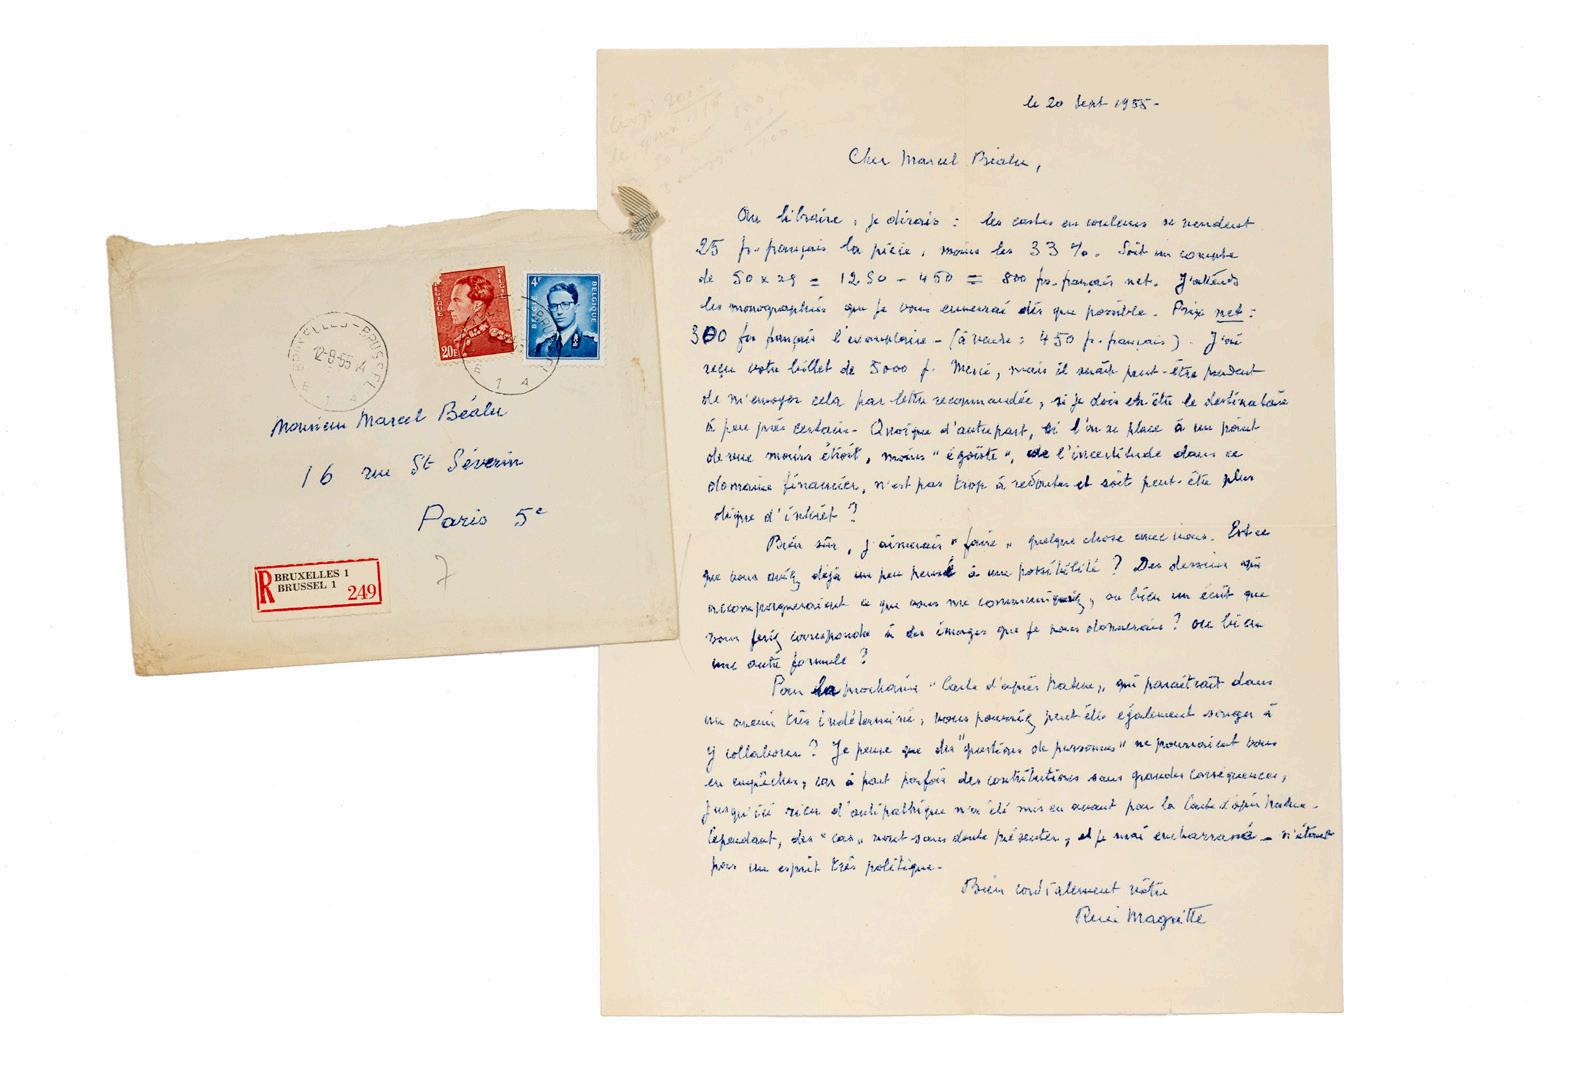 BRUXELLES - BRUSSEL
12-9-55
1 A
BELGIQUE
20F
4F
BELGIQUE
1 A
Monsieur Marcel Béalu
16 rue St Séverin
Paris 5e
R BRUXELLES 1
BRUSSEL 1 249
7
le 20 Sept 1955-
Cher Marcel Béalu,
Au libraire, je dirais : les cartes en couleurs se vendent
25 fr. français la pièce, moins les 33 %. Soit un compte
de 50 x 25 = 1250 - 450 = 800 frs. français net. J'attends
les monographies que je vous enverrai dès que possible. Prix net :
300 frs français l'exemplaire - (à vendre : 450 fr. français). J'ai
reçu votre billet de 5000 f. Merci, mais il serait peut-être prudent
de m'envoyer cela par lettre recommandée, si je dois en être le destinataire
à peu près certain. Quoique d'autre part, si l'on se place à un point
de vue moins étroit, moins "égoïste", de l'incertitude dans ce
domaine financier, n'est pas trop à redouter et soit peut-être plus
digne d'intérêt ?
Bien sûr, j'aimerais "faire" quelque chose avec vous. Est-ce
que vous avez déjà un peu pensé à une possibilité ? Des dessins qui
accompagneraient ce que vous me communiquez, ou bien un écrit que
vous feriez correspondre à des images que je vous donnerais ? ou bien
une autre formule ?
Pour la prochaine "Carte d'après Nature", qui paraîtrait dans
un avenir très indéterminé, vous pourriez peut-être également songer à
y collaborer ? Je pense que des "questions de personnes" ne pourraient vous
en empêcher, car à part parfois des contributions sans grandes conséquences,
jusqu'ici rien d'antipathique n'a été mis en avant par la Carte d'après Nature.
Cependant, des "cas" vont sans doute se présenter, et je serai embarrassé - n'étant
pas un esprit très politique.
Bien cordialement vôtre
René Magritte